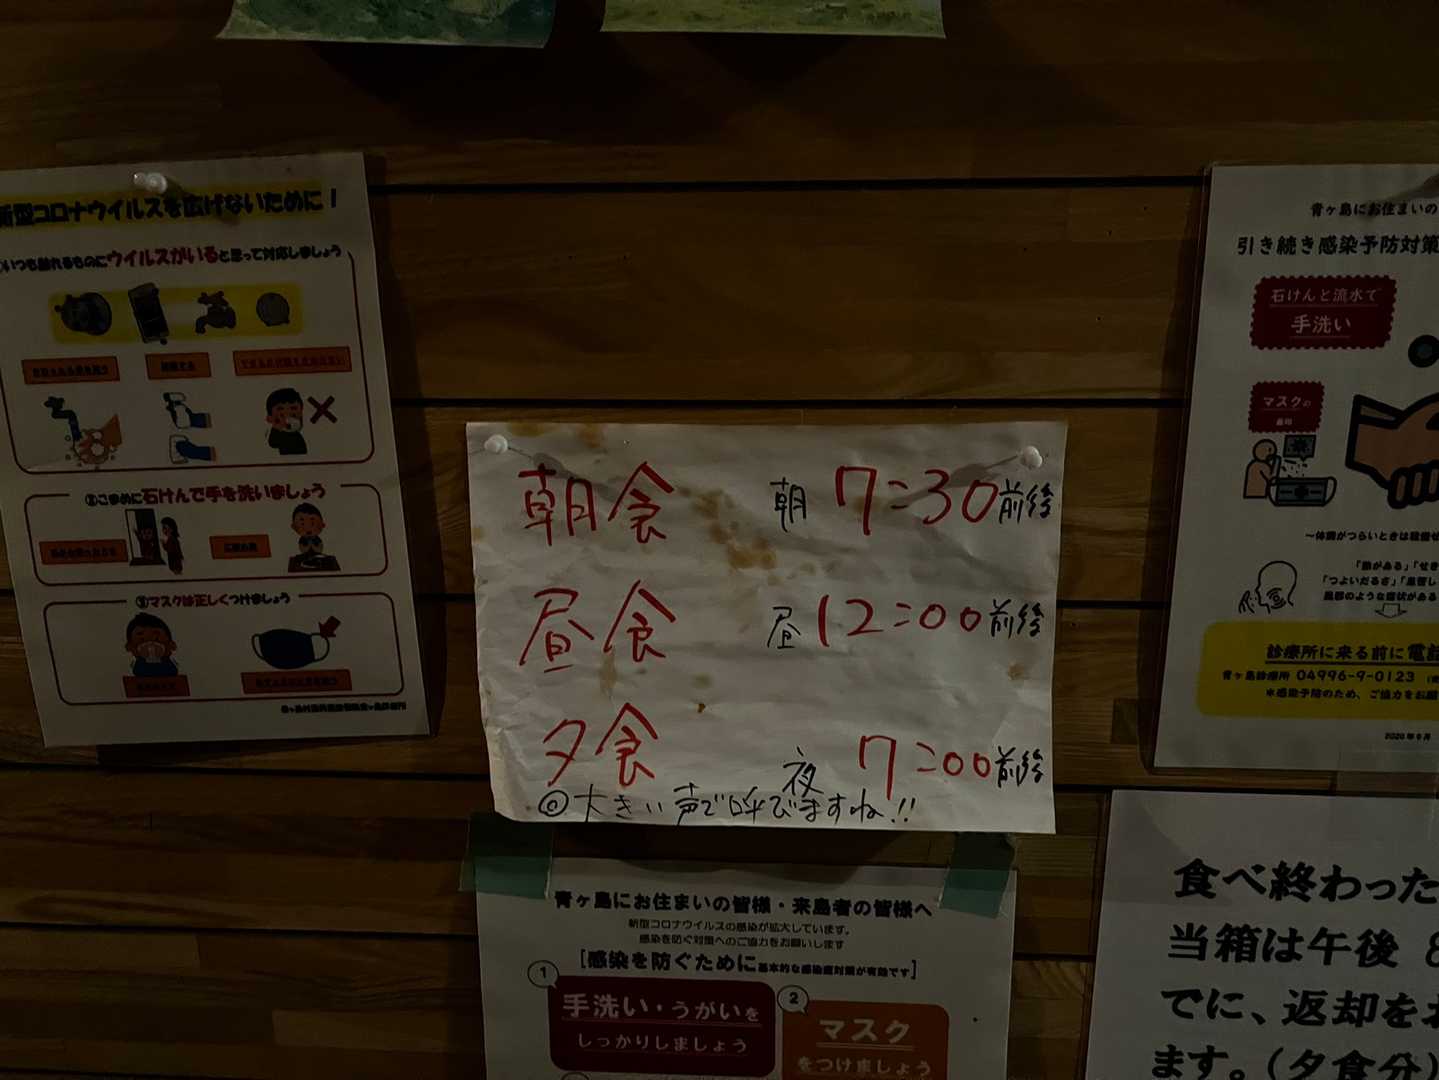 新型コロナウイルスを広げないために!
いつも触れるものにウイルスがいると思って対応しましょう
②こまめに石けんで手を洗いましょう
③マスクは正しくつけましょう
朝食 朝 7:30前後
昼食 昼 12:00前後
夕食 夜 7:00前後
◎大きい声で呼びますね!!
青ヶ島にお住まいの
引き続き感染予防対策
石けんと流水で
手洗い
マスクの
~体調がつらいときは
「熱がある」「せき
「つよいだるさ」「息苦し
風邪のような症状がある
診療所に来る前に電話
青ヶ島診療所 04996-9-0123
※感染予防のため、ご協力をお願
青ヶ島にお住まいの皆様・来島者の皆様へ
新型コロナウイルスの感染が拡大しています。
感染を防ぐ対策へのご協力をお願いします
[感染を防ぐために基本的な感染症対策が有効です]
1
手洗い・うがいを
しっかりしましょう
2
マスク
をつけましょう
食べ終わった
当箱は午後 8
でに、返却をお
ます。(夕食分)